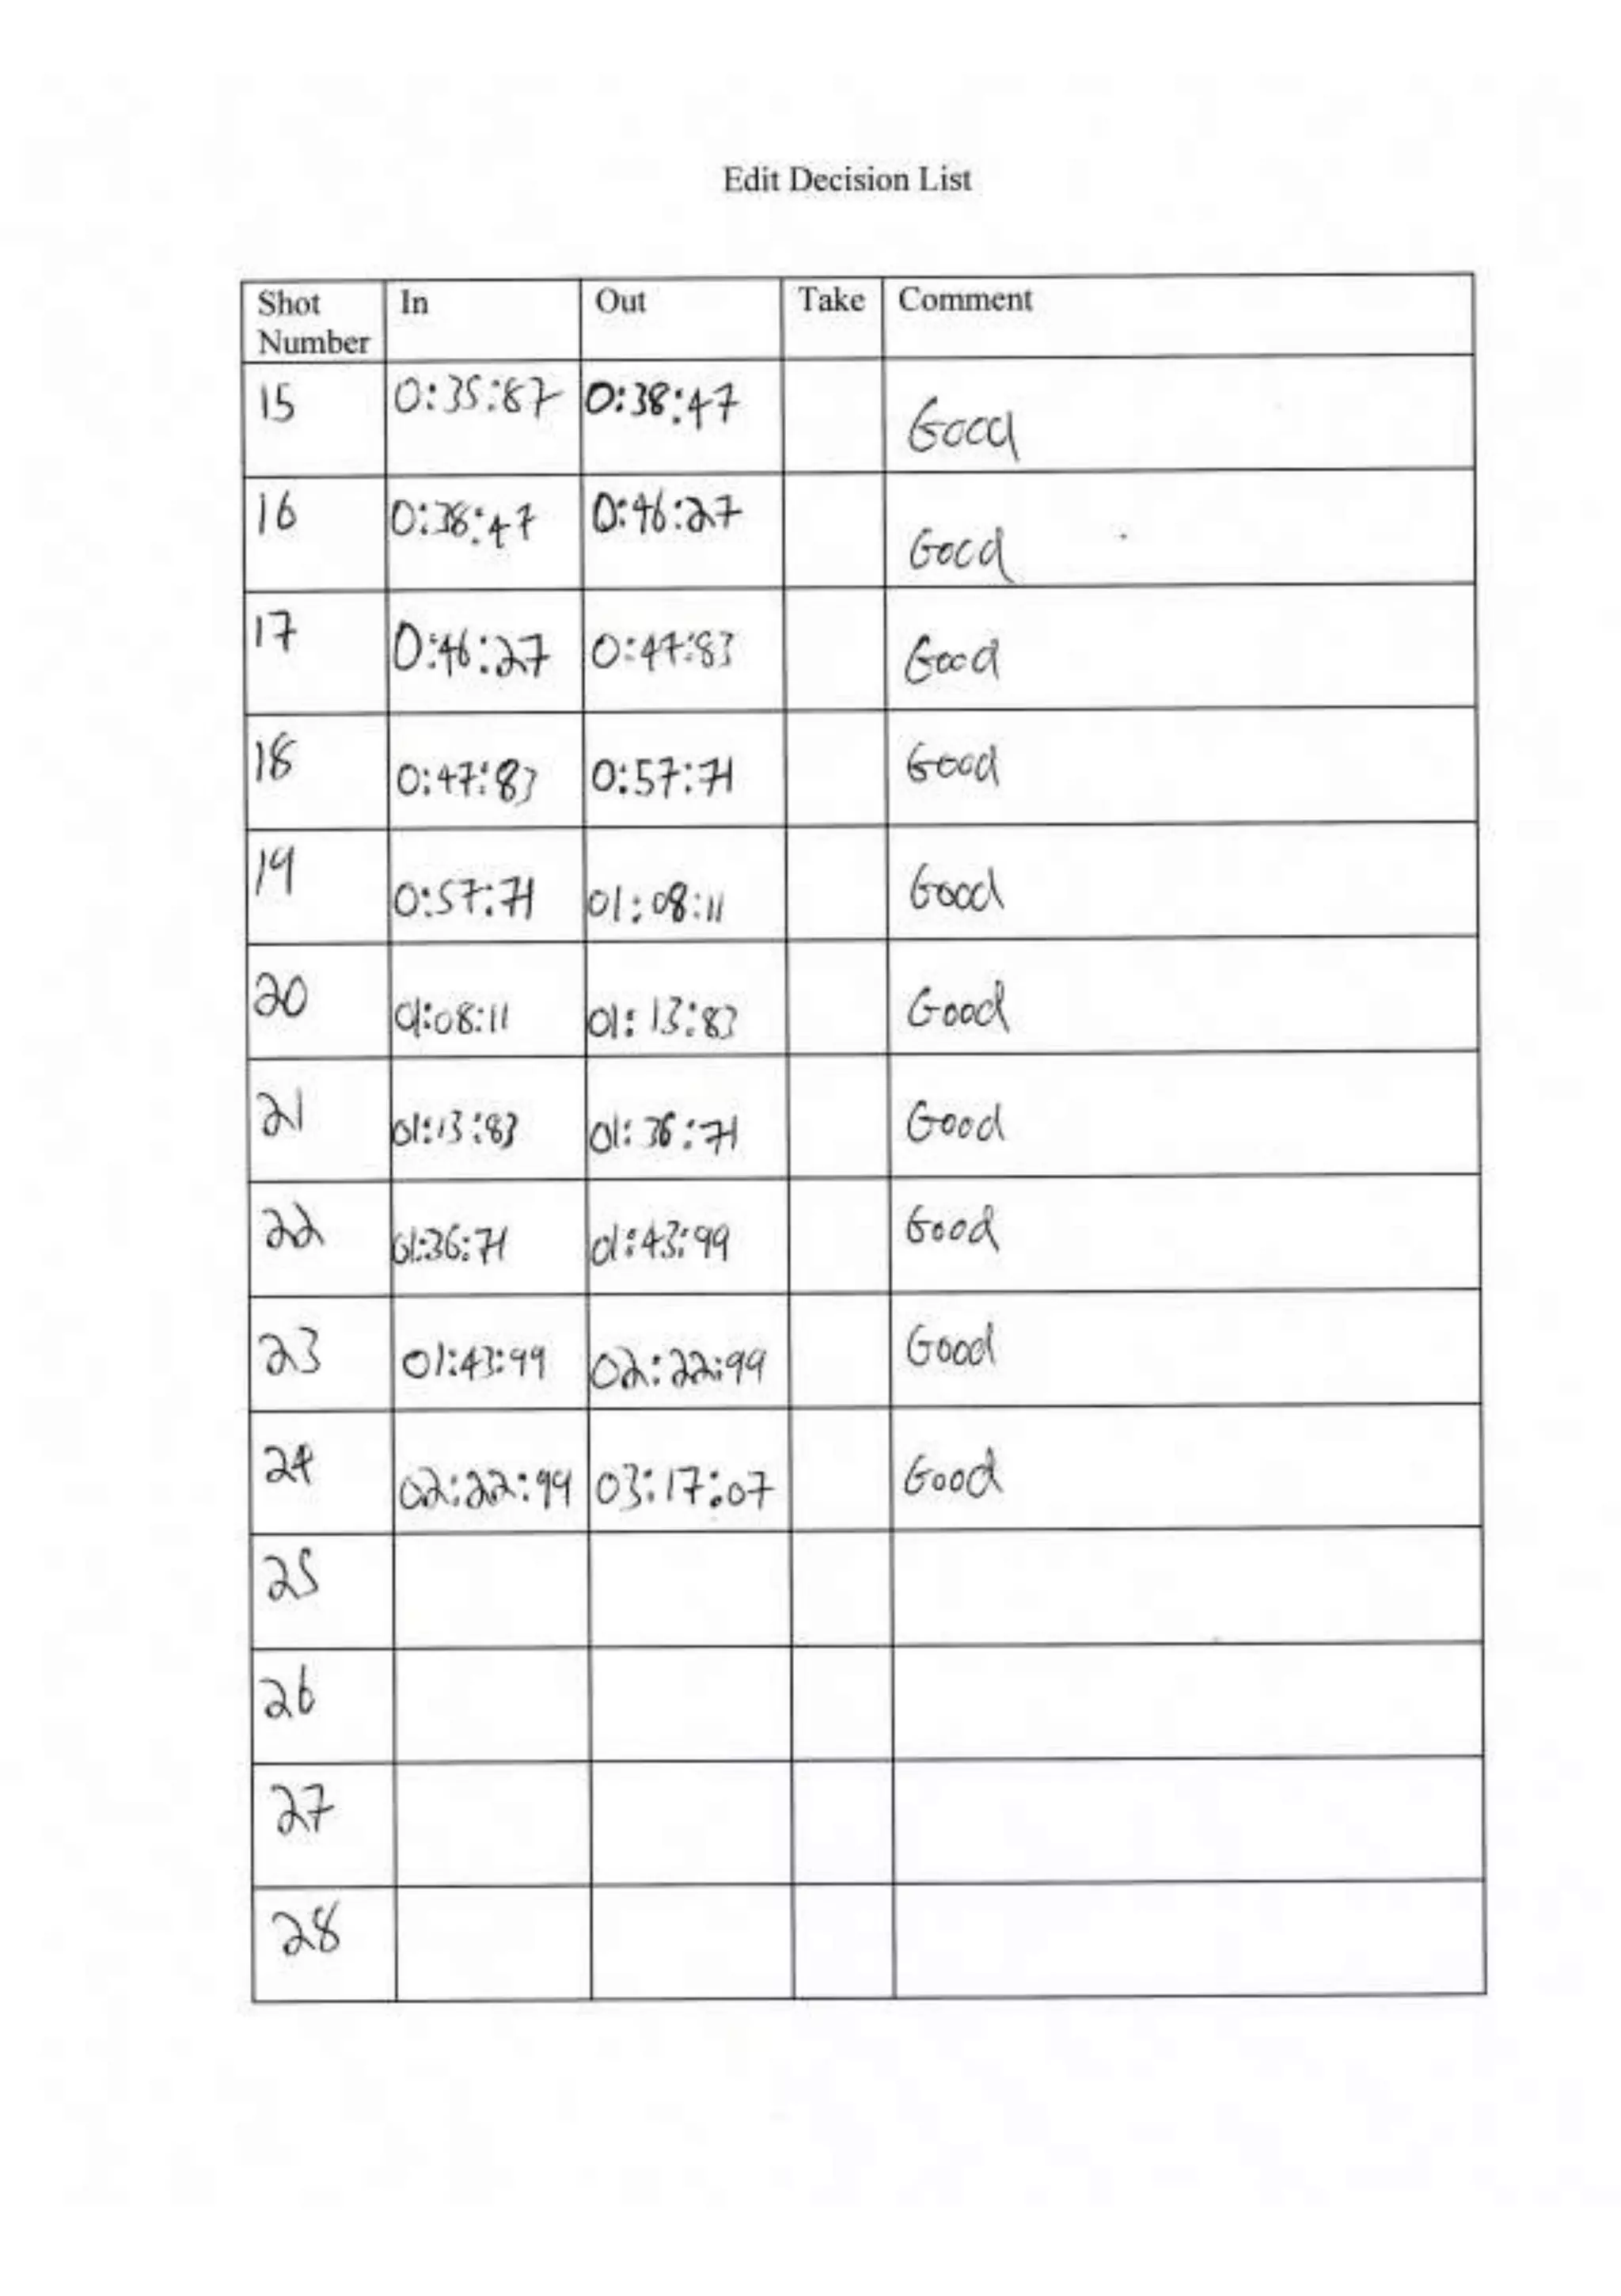 Edit Decision List
Shot Number In Out Take Comment
15 0:35:87 0:38:47 Good
16 0:38:47 0:46:27 Good
17 0:46:27 0:47:83 Good
18 0:47:83 0:57:71 Good
19 0:57:71 01:08:11 Good
20 01:08:11 01:13:83 Good
21 01:13:83 01:36:71 Good
22 01:36:71 01:43:99 Good
23 01:43:99 02:22:99 Good
24 02:22:99 03:17:07 Good
25
26
27
28